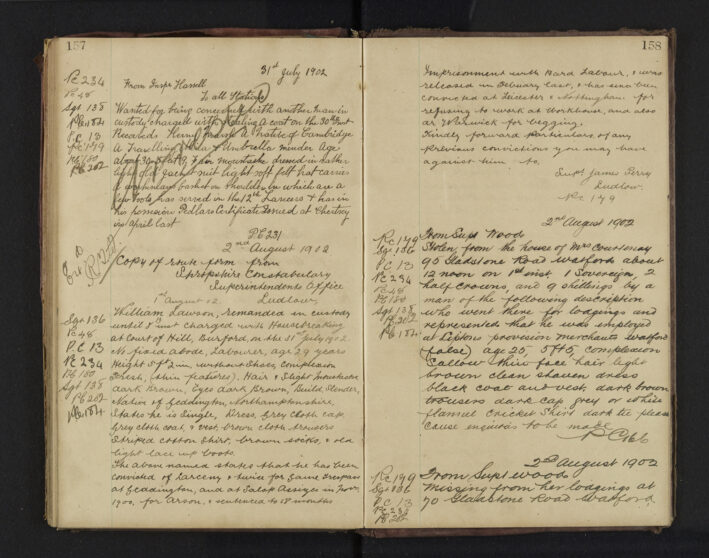 157
31st July 1902
From Inspr Harrell
To all Stations
Wanted for being concerned with another man in
custody charged with stealing a coat on the 30th Inst
Henry Francis A Native of Cambridge
A Travelling & Umbrella mender Age
about 30 5ft 9, Fair moustache dressed in rather
light old Jacket suit light soft felt hat carries
a workman's basket on shoulder in which are a
few tools, has served in the 12th Lancers & has in
his possession Pedlars Certificate issued at Chertsey
in April last
PC 231
2nd August 1902
Copy of route form from
Shropshire Constabulary
Superintendents Office
Ludlow,
1st August 02.
William Lawson, remanded in custody
until 8 inst charged with Housebreaking
at Court of Hill, Burford, on the 31st July 1902
No fixed abode, Labourer, age 29 years
Height 5ft 2in, without Shoes, Complexion
Fresh, (thin features). Hair & Slight Moustache
dark Brown, Eyes dark Brown, Build Slender,
Native of Geddington, Northamptonshire,
State he is Single, Dress, Grey Cloth cap
Grey cloth coat, & vest, brown cloth trousers
Striped cotton Shirt, brown socks, & old
light lace up boots.
The above named states that he has been
convicted of Larceny & twice for Game Trespass
at Geddington, and at Salop Assizes in Novr
1900, for Arson, & sentenced to 18 months
PC 234
PC 48
Sgt 138
PC 184
PC 13
PC 149
PC 180
PC 202
Sgt 136
PC 48
PC 13
PC 234
PC 180
Sgt 138
PC 202
PC 184
158
Imprisonment with Hard Labour, & was
released in February last, & has since been
convicted at Leicester & Nottingham for
refusing to work at Workhouse, and also
at Warwick for begging.
Kindly forward particulars of any
previous convictions you may have
against him to.
Supt. James Perry
Ludlow.
PC 149
2nd August 1902
From Supt Wood
Stolen, from the house of Mrs Courtenay
95 Gladstone Road Watford about
12 noon on 1st inst. 1 Sovereign, 2
half crowns, and 9 shillings by a
man of the following description
who went there for lodgings and
represented that he was employed
at Liptons provision merchants Watford
(false) age 25, 5ft 5, complexion
Sallow thin face hair light
brown clean shaven dress
black coat and vest dark brown
trousers dark cap grey or white
flannel Cricket Shirt dark tie please
cause enquiries to be made
PC 149
Sgt 136
PC 13
PC 234
PC 48
PC 180
Sgt 138
PC 202
PC 184
2nd August 1902
From Supt Wood.
Missing from her lodgings at
70 Gladstone Road Watford,
PC 149
Sgt 136
PC 13
PC 234
PC 202